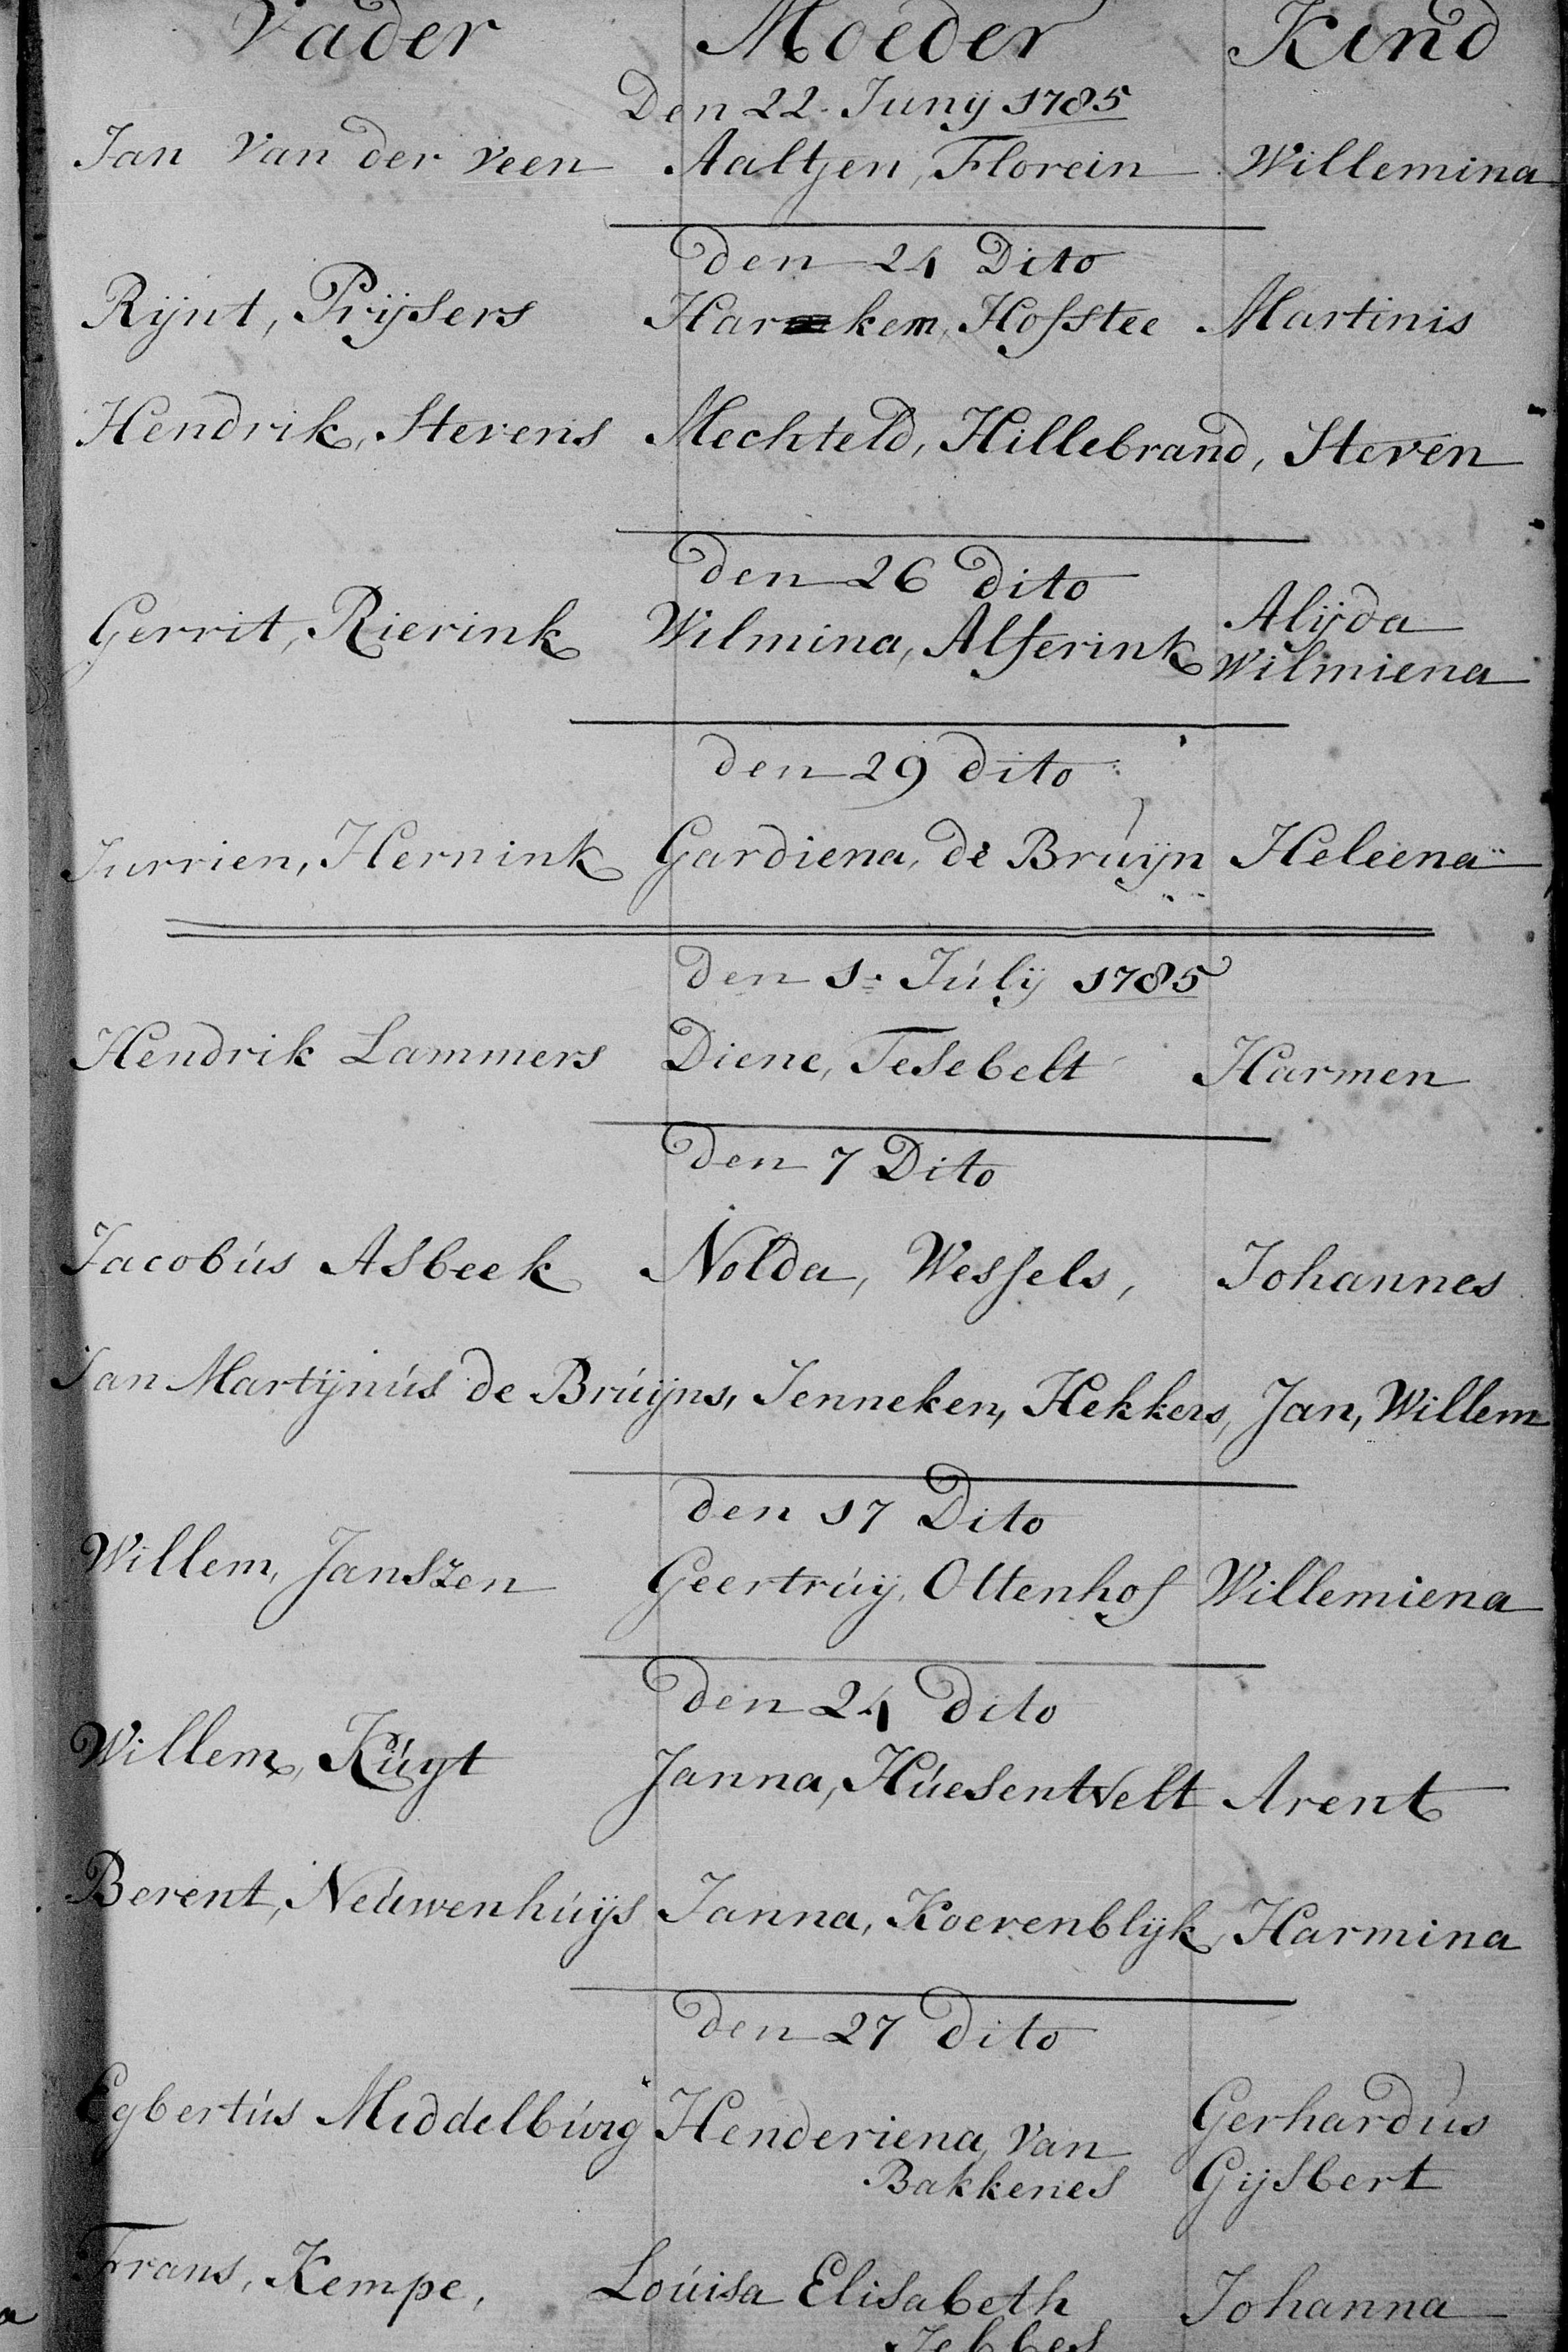 Vader Moeder Kind
Den 22. Junÿ 1785
Jan Van der veen Aaltjen, Florein Willemina
den 24 Dito
Rÿnt, Prÿsers Harkem, Hofstee Martinis
Hendrik, Stevens Mechteld, Hillebrand, Steven
den 26 dito
Gerrit, Rierink Wilmina, Alferink Alÿda
Wilmiena
den 29 dito
Jurrien, Hernink Gardiena, de Brúÿn Heleena
den 1. Júlÿ 1785
Hendrik Lammers Diene, Tesebelt Harmen
den 7 Dito
Jacobús Asbeek Nolda, Wessels, Johannes
Jan Martÿnús de Brúÿns, Jenneken, Hekkers, Jan, Willem
den 17 Dito
Willem, Janszen Geertrúÿ, Ottenhof Willemiena
den 24 dito
Willem, Kúyt Janna, Húesentvelt Arent
Berent, Neúwenhúÿs Janna, Koerenblÿk, Harmina
den 27 dito
Egbertús Middelbúrg Henderiena, van Gerhardús
Bakkenes Gijsbert
Frans, Kempe, Loúisa Elisabeth Johanna